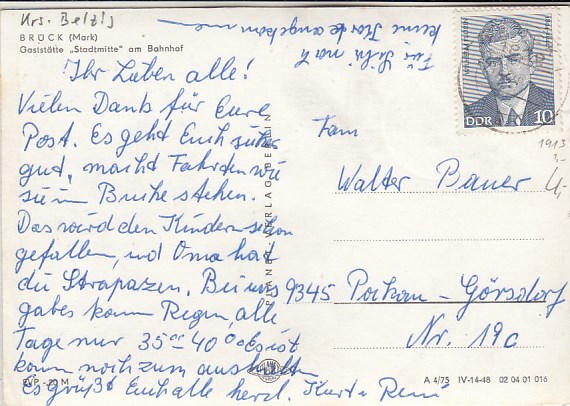 Krs. Belzig
BRÜCK (Mark)
Gaststätte „Stadtmitte" am Bahnhof
Für Dich noch
keine Karte angekommen
Ihr Lieben alle!
Vielen Dank für Eure
Post. Es geht Euch sicher
gut, macht Fahrten wie
sie im Buche stehen.
Das wird den Kindern schon
gefallen, und Oma hat
die Strapazen. Bei uns
gabes kaum Regen, alle
Tage nur 35°° 40° es ist
kaum noch zum aushalten
Es grüßt Euch alle herzl. Kurt + Reni
PLANET-VERLAG BERLIN
EVP -,20 M
DDR 10
1913
3,-
4,-
Fam
Walter Bauer
9345 Pockau-Görsdorf
Nr. 19c
A 4/75 IV-14-48 02 04 01 016